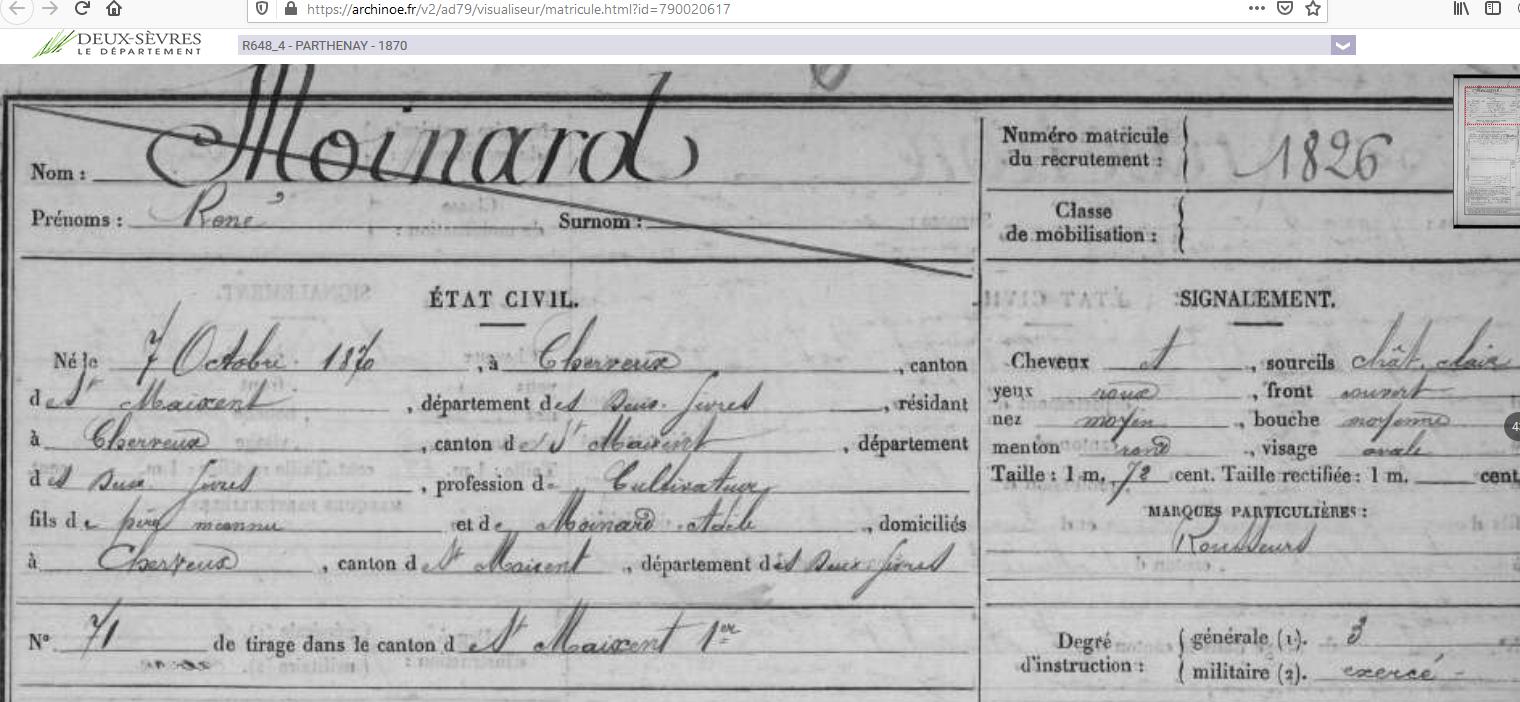 https://archinoe.fr/v2/ad79/visualiseur/matricule.html?id=790020617
DEUX-SÈVRES
LE DÉPARTEMENT
R648_4 - PARTHENAY - 1870
Nom : Moinard
Prénoms : René Surnom :
Numéro matricule
du recrutement : 1826
Classe
de mobilisation :
ÉTAT CIVIL.
Né le 7 Octobre 1870, à Cherveux, canton
de St Maixent, département des Deux-Sèvres, résidant
à Cherveux, canton de St Maixent, département
des Deux Sèvres, profession de Cultivateur
fils de père inconnu et de Moinard Adèle, domiciliés
à Cherveux, canton de St Maixent, département des Deux Sèvres
N° 71 de tirage dans le canton de St Maixent 1er
SIGNALEMENT.
Cheveux et, sourcils chât. clair
yeux roux, front ouvert
nez moyen, bouche moyenne
menton rond, visage ovale
Taille : 1 m. 72 cent. Taille rectifiée : 1 m. cent.
MARQUES PARTICULIÈRES :
Rousseurs
Degré
d'instruction :
générale (1). 3
militaire (2). exercé